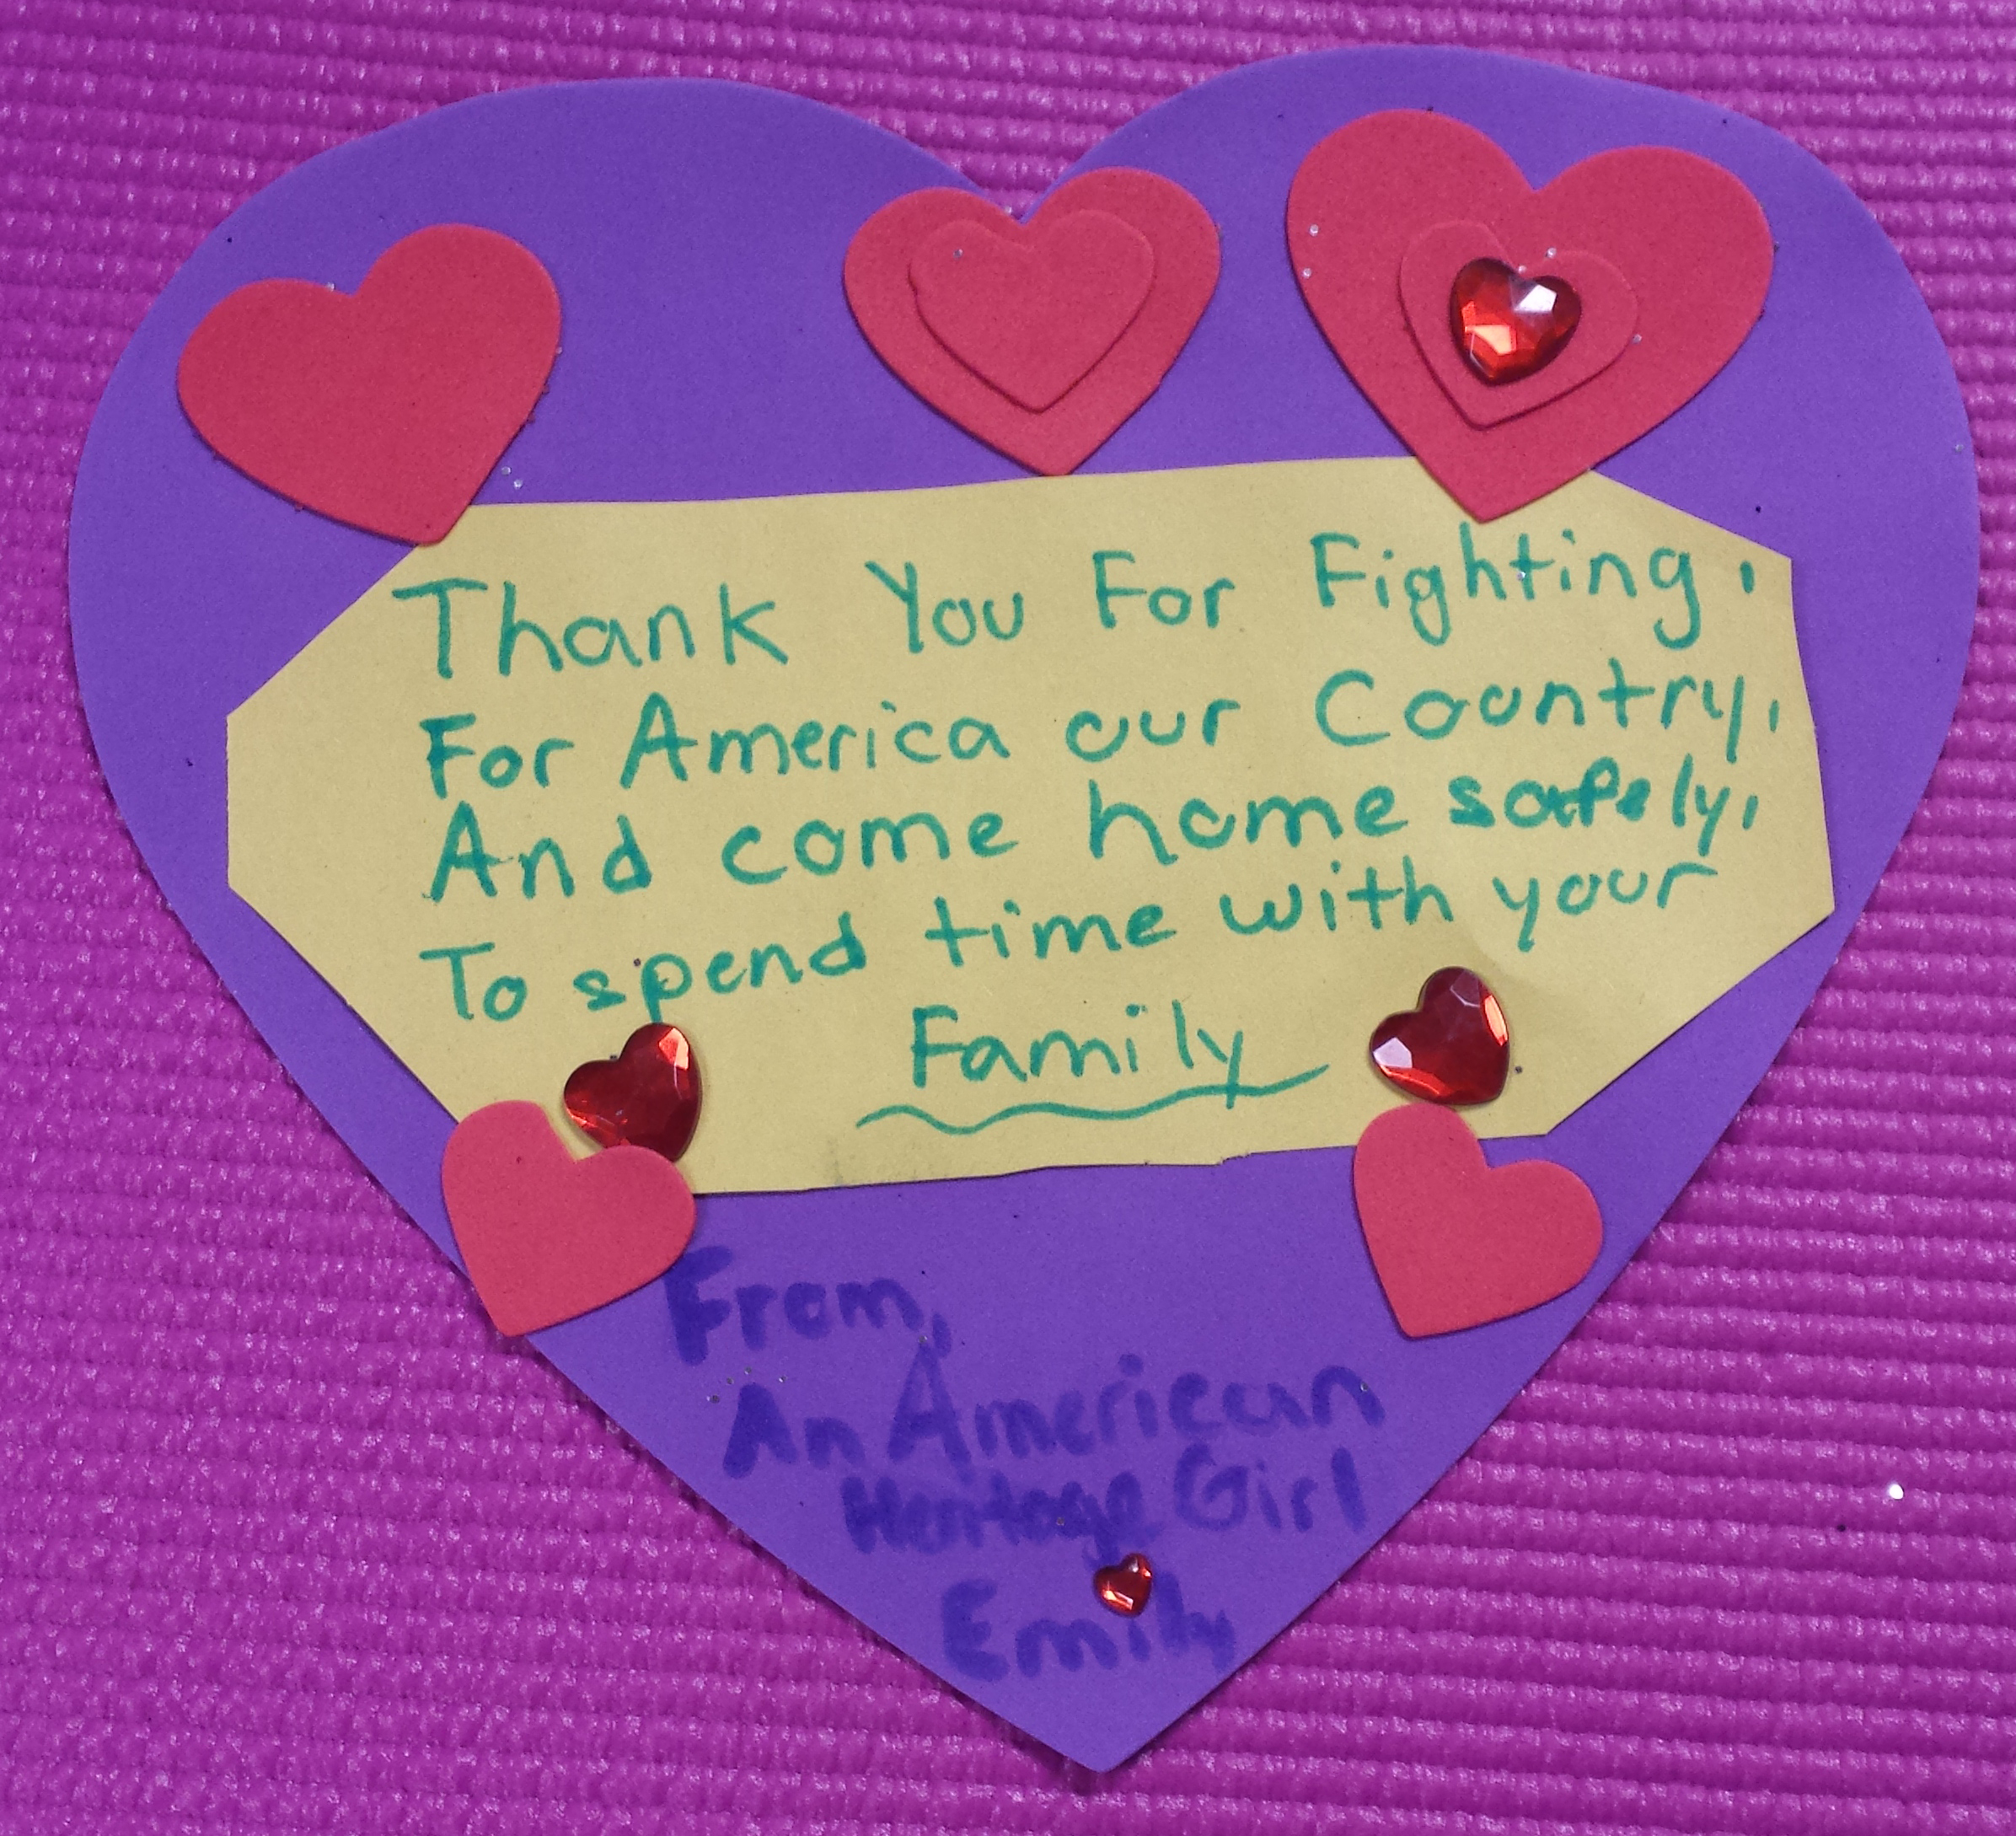 Thank You For Fighting,
For America our Country,
And come home safely,
To spend time with your
Family
From,
An American
Heritage Girl
Emily